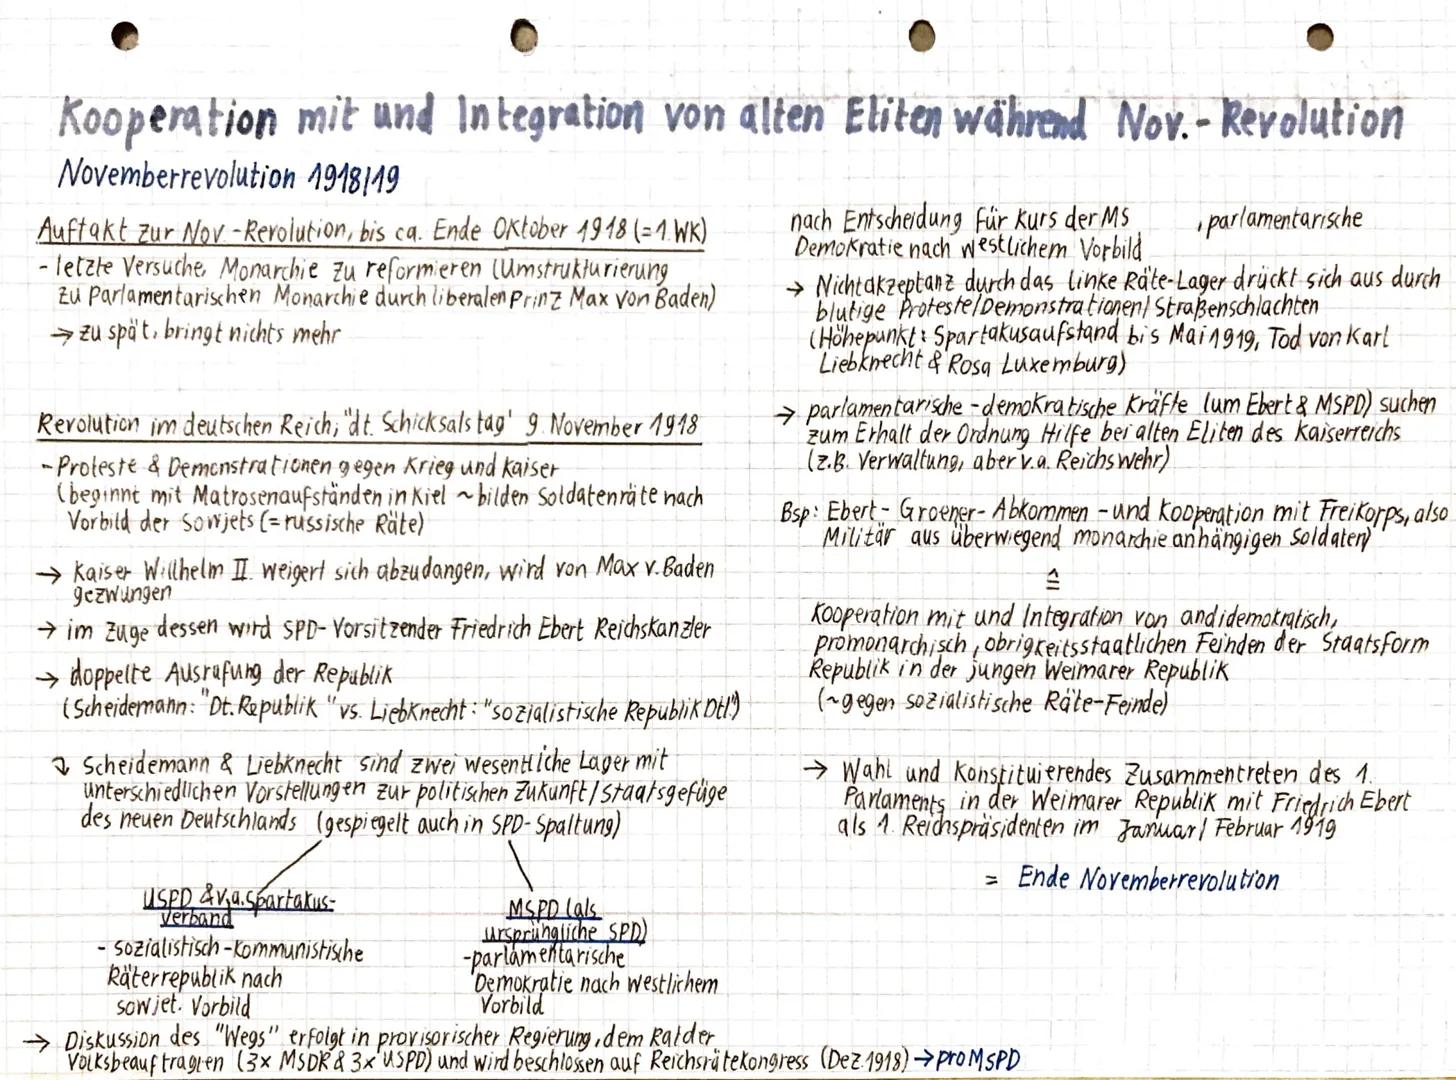 Kooperation mit und Integration von alten Eliten während Nov.-Revolution
Novemberrevolution 1918/19
Auftakt zur Nov.-Revolution, bis ca. Ende Oktober 1918 (=1.WK)
- letzte Versuche, Monarchie zu reformieren (Umstrukturierung
zu Parlamentarischen Monarchie durch liberalen Prinz Max von Baden)
→ zu spät, bringt nichts mehr
Revolution im deutschen Reich, "dt. Schicksalstag" 9. November 1918
- Proteste & Demonstrationen gegen Krieg und Kaiser
(beginnt mit Matrosenaufständen in Kiel ~ bilden Soldatenräte nach
Vorbild der Sowjets (= russische Räte)
→ Kaiser Willhelm II. weigert sich abzudangen, wird von Max v. Baden
gezwungen
→ im Zuge dessen wird SPD-Vorsitzender Friedrich Ebert Reichskanzler
→ doppelte Ausrufung der Republik
(Scheidemann: "Dt. Republik" vs. Liebknecht: "sozialistische Republik Dtl.")
↴ Scheidemann & Liebknecht sind zwei wesentliche Lager mit
unterschiedlichen Vorstellungen zur politischen Zukunft/Staatsgefüge
des neuen Deutschlands (gespiegelt auch in SPD-Spaltung)
USPD & v.a. Spartakus-
verband
- sozialistisch-kommunistische
Räterrepublik nach
sowjet. Vorbild
MSPD (als
ursprüngliche SPD)
- parlamentarische
Demokratie nach westlichem
Vorbild
→ Diskussion des "Wegs" erfolgt in provisorischer Regierung, dem Rat der
Volksbeauftragten (3x MSDR & 3x USPD) und wird beschlossen auf Reichsrätekongress (Dez.1918) → pro MSPD
nach Entscheidung für Kurs der MS , parlamentarische
Demokratie nach westlichem Vorbild
→ Nichtakzeptanz durch das linke Räte-Lager drückt sich aus durch
blutige Proteste/Demonstrationen/Straßenschlachten
(Höhepunkt: Spartakusaufstand bis Mai 1919, Tod von Karl
Liebknecht & Rosa Luxemburg)
→ parlamentarische-demokratische Kräfte (um Ebert & MSPD) suchen
zum Erhalt der Ordnung Hilfe bei alten Eliten des Kaiserreichs
(z.B. Verwaltung, aber v.a. Reichswehr)
Bsp: Ebert-Groener-Abkommen - und Kooperation mit Freikorps, also
Militär aus überwiegend monarchieanhängigen Soldaten)
≙
Kooperation mit und Integration von andidemokratisch,
promonarchisch, obrigkeitsstaatlichen Feinden der Staatsform
Republik in der jungen Weimarer Republik
(~ gegen sozialistische Räte-Feinde)
→ Wahl und Konstituierendes Zusammentreten des 1.
Parlaments in der Weimarer Republik mit Friedrich Ebert
als 1. Reichspräsidenten im Januar/Februar 1919
= Ende Novemberrevolution